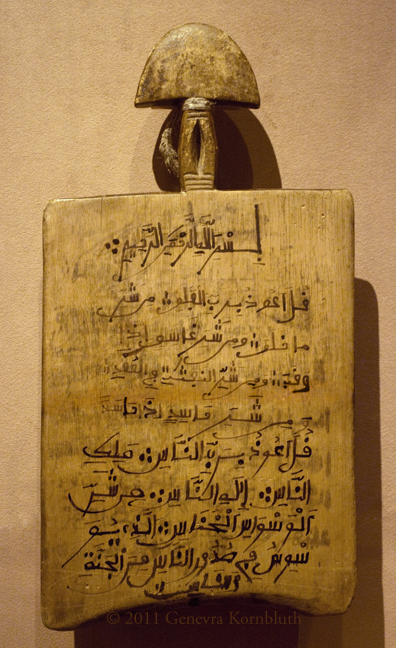 بسم الله الرحمن الرحيم
قل اعوذ برب الفلق من شر
ما خلق ومن شر غاسق اذا
وقب ومن شر النفثت في العقد
ومن شر
قل اعوذ برب الناس ملك
الناس اله الناس من شر
الوسواس الخناس الذي يو
سوس في صدور الناس من الجنة
والناس
© 2011 Genevra Kornbluth